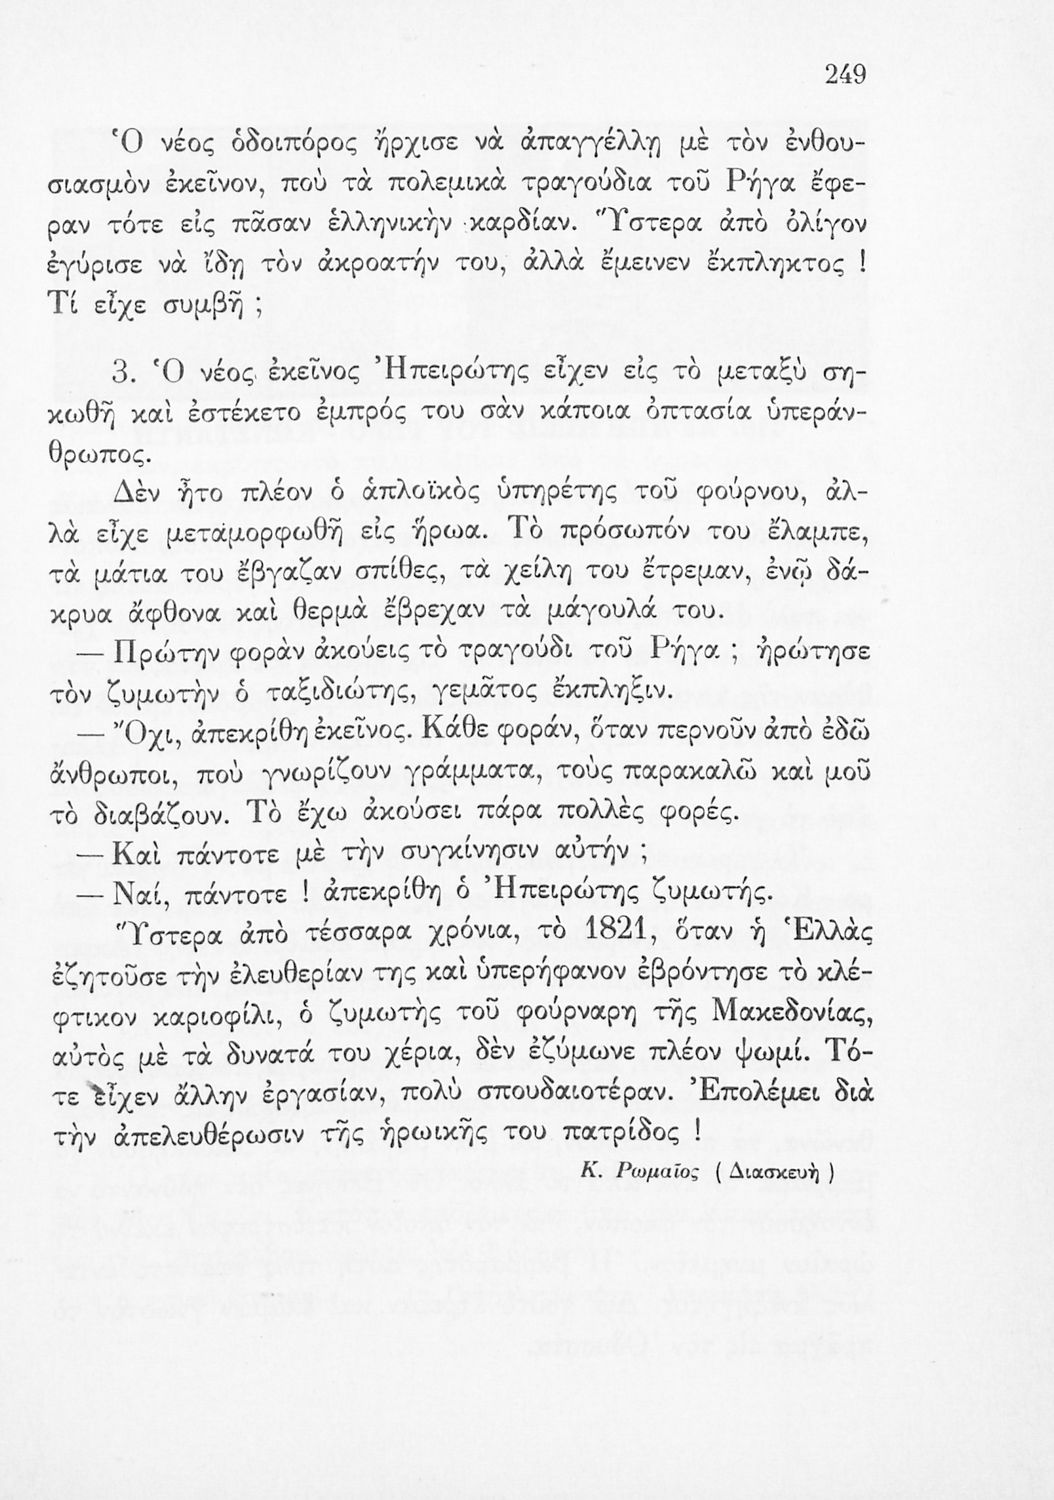 249
Ὁ νέος ὁδοιπόρος ἤρχισε νὰ ἀπαγγέλλῃ μὲ τὸν ἐνθου-
σιασμὸν ἐκεῖνον, ποὺ τὰ πολεμικὰ τραγούδια τοῦ Ρήγα ἔφε-
ραν τότε εἰς πᾶσαν ἑλληνικὴν καρδίαν. Ὕστερα ἀπὸ ὀλίγον
ἐγύρισε νὰ ἴδῃ τὸν ἀκροατήν του, ἀλλὰ ἔμεινεν ἔκπληκτος !
Τί εἶχε συμβῆ ;
3. Ὁ νέος ἐκεῖνος Ἠπειρώτης εἶχεν εἰς τὸ μεταξὺ ση-
κωθῆ καὶ ἐστέκετο ἐμπρός του σὰν κάποια ὀπτασία ὑπεράν-
θρωπος.
Δὲν ἦτο πλέον ὁ ἁπλοϊκὸς ὑπηρέτης τοῦ φούρνου, ἀλ-
λὰ εἶχε μεταμορφωθῆ εἰς ἥρωα. Τὸ πρόσωπόν του ἔλαμπε,
τὰ μάτια του ἔβγαζαν σπίθες, τὰ χείλη του ἔτρεμαν, ἐνῷ δά-
κρυα ἄφθονα καὶ θερμὰ ἔβρεχαν τὰ μάγουλά του.
— Πρώτην φορὰν ἀκούεις τὸ τραγούδι τοῦ Ρήγα ; ἠρώτησε
τὸν ζυμωτὴν ὁ ταξιδιώτης, γεμᾶτος ἔκπληξιν.
— Ὄχι, ἀπεκρίθη ἐκεῖνος. Κάθε φοράν, ὅταν περνοῦν ἀπὸ ἐδῶ
ἄνθρωποι, ποὺ γνωρίζουν γράμματα, τοὺς παρακαλῶ καὶ μοῦ
τὸ διαβάζουν. Τὸ ἔχω ἀκούσει πάρα πολλὲς φορές.
— Καὶ πάντοτε μὲ τὴν συγκίνησιν αὐτήν ;
— Ναί, πάντοτε ! ἀπεκρίθη ὁ Ἠπειρώτης ζυμωτής.
Ὕστερα ἀπὸ τέσσαρα χρόνια, τὸ 1821, ὅταν ἡ Ἑλλὰς
ἐζητοῦσε τὴν ἐλευθερίαν της καὶ ὑπερήφανον ἐβρόντησε τὸ κλέ-
φτικον καριοφίλι, ὁ ζυμωτὴς τοῦ φούρναρη τῆς Μακεδονίας,
αὐτὸς μὲ τὰ δυνατά του χέρια, δὲν ἐζύμωνε πλέον ψωμί. Τό-
τε εἶχεν ἄλλην ἐργασίαν, πολὺ σπουδαιοτέραν. Ἐπολέμει διὰ
τὴν ἀπελευθέρωσιν τῆς ἡρωικῆς του πατρίδος !
Κ. Ρωμαῖος ( Διασκευὴ )